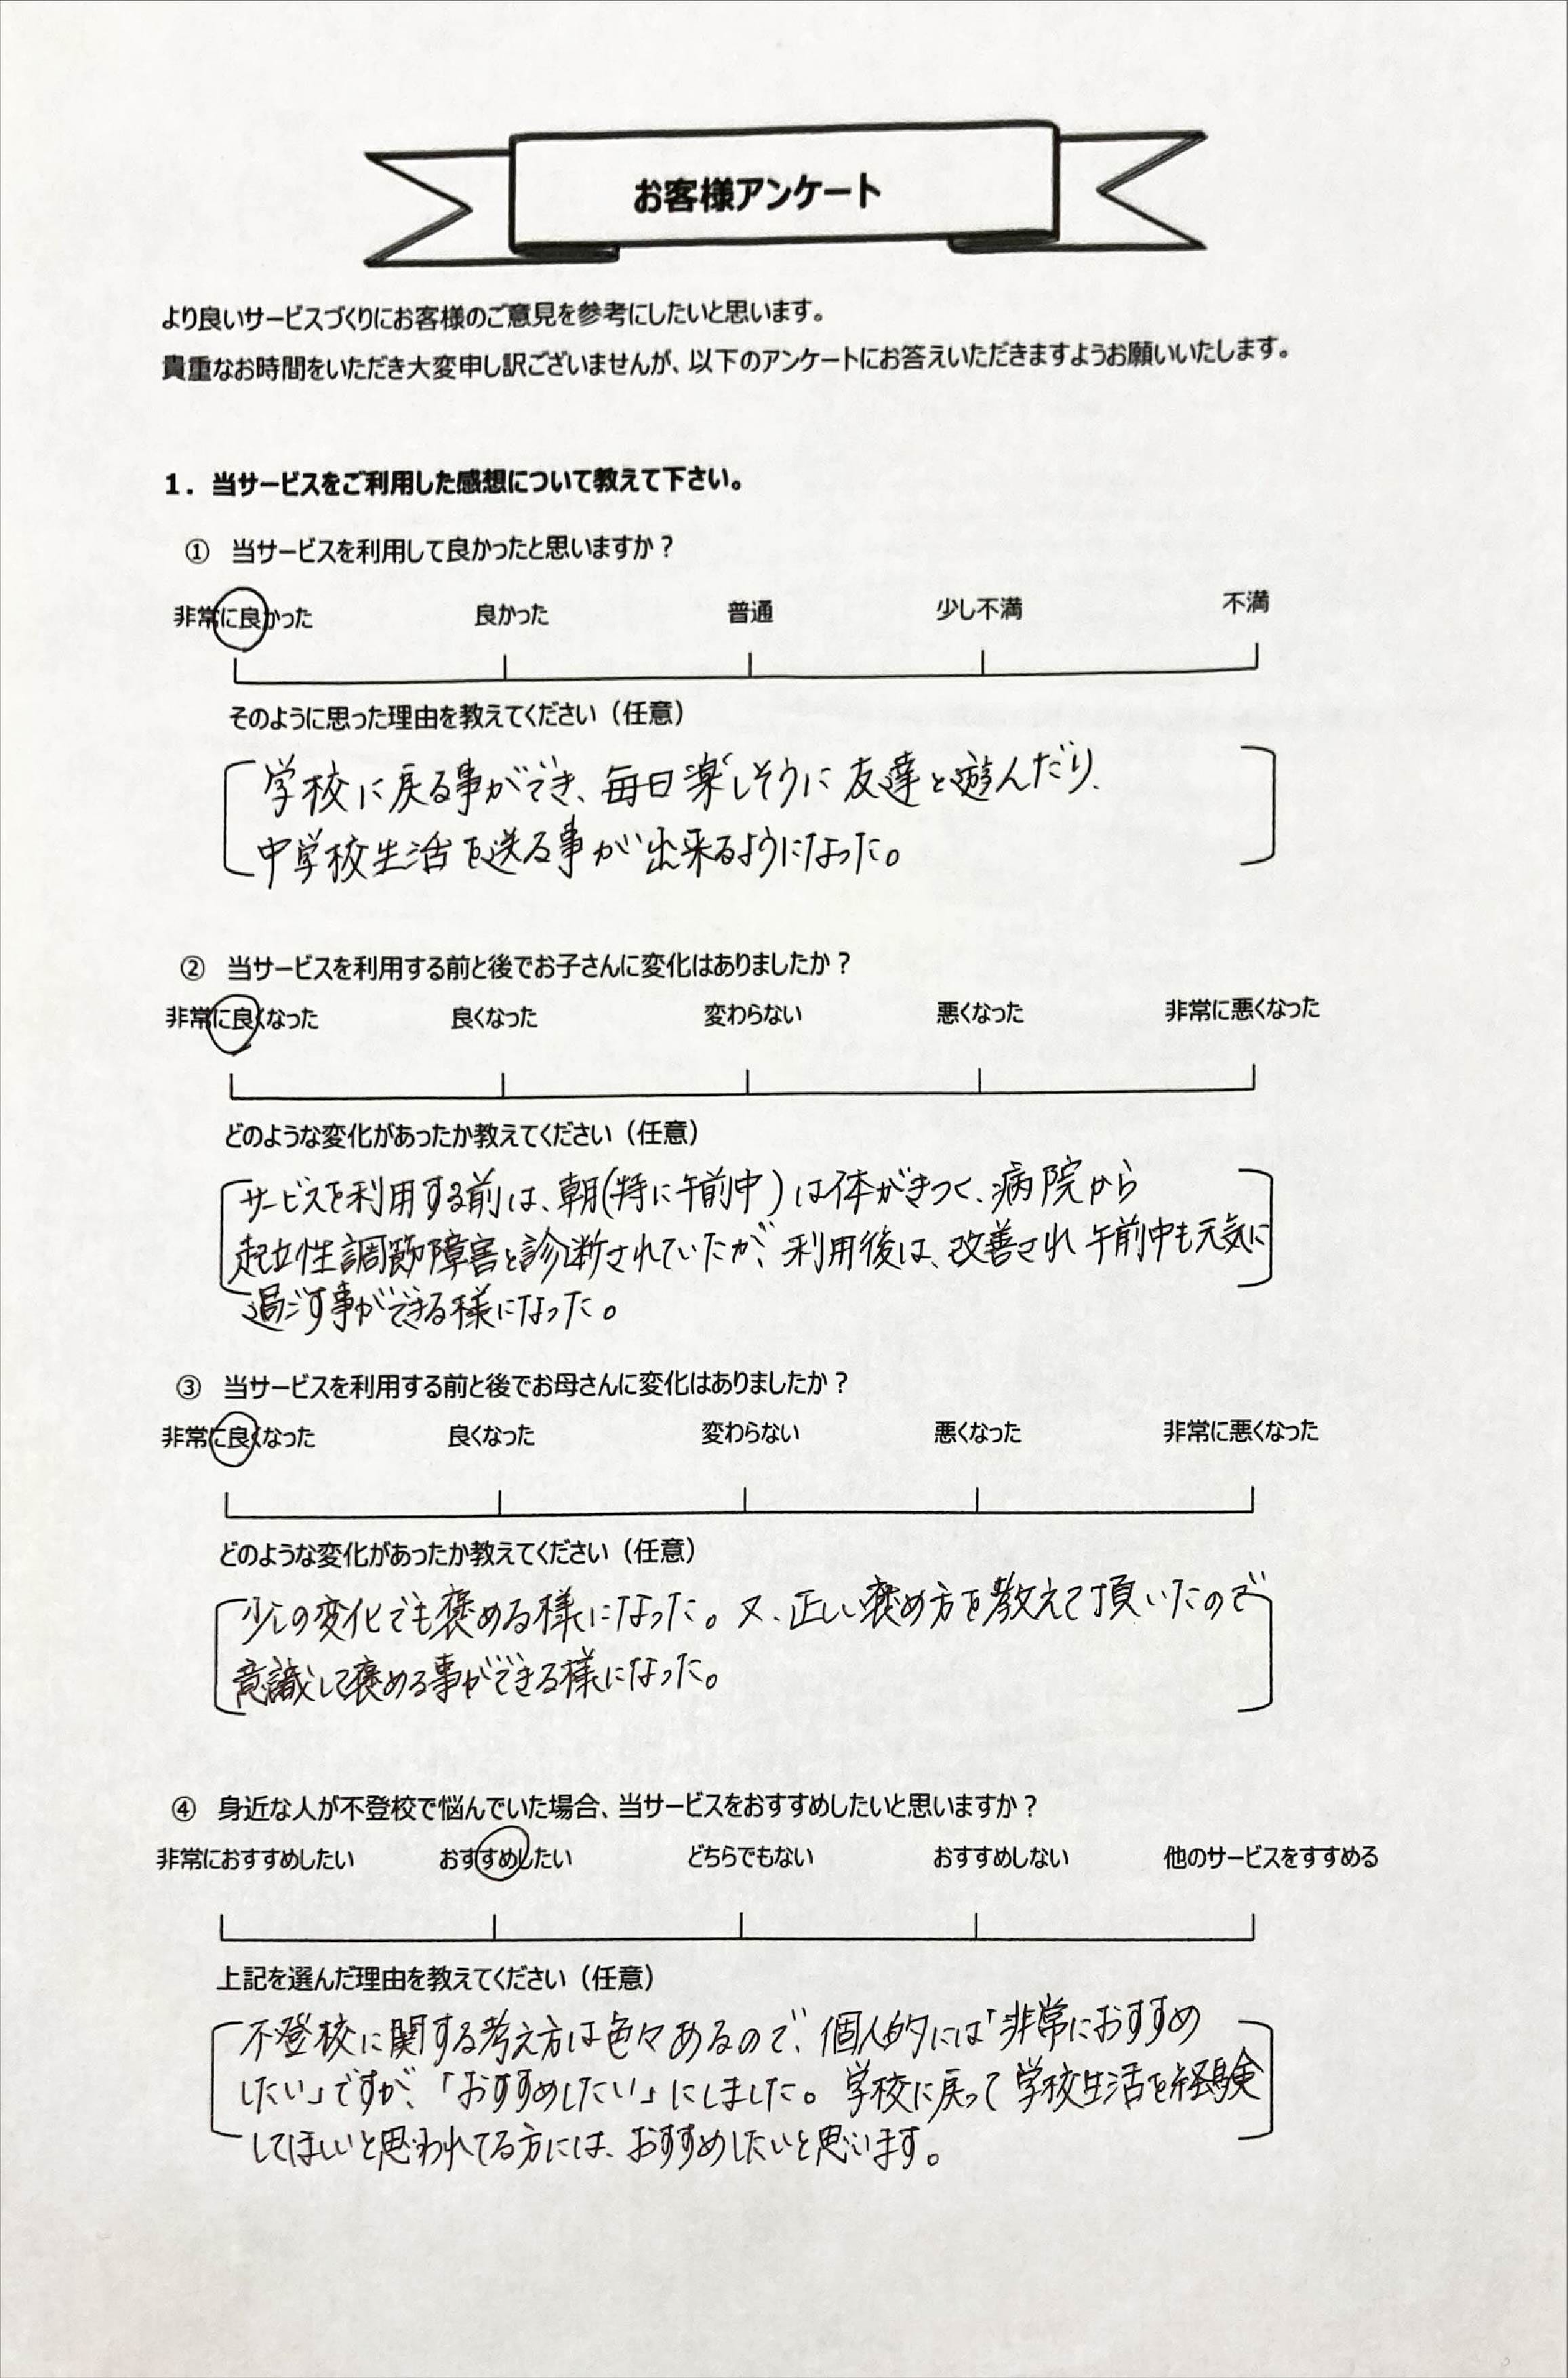 お客様アンケート
より良いサービスづくりにお客様のご意見を参考にしたいと思います。
貴重なお時間をいただき大変申し訳ございませんが、以下のアンケートにお答えいただきますようお願いいたします。
1. 当サービスをご利用した感想について教えて下さい。
① 当サービスを利用して良かったと思いますか？
非常に良かった 良かった 普通 少し不満 不満
そのように思った理由を教えてください（任意）
学校に戻る事ができ、毎日楽しそうに友達と遊んだり、
中学校生活を送る事が出来るようになった。
② 当サービスを利用する前と後でお子さんに変化はありましたか？
非常に良くなった 良くなった 変わらない 悪くなった 非常に悪くなった
どのような変化があったか教えてください（任意）
サービスを利用する前は、朝(特に午前中)は体がきつく、病院から
起立性調節障害と診断されていたが、利用後は、改善され午前中も元気に
過ごす事ができる様になった。
③ 当サービスを利用する前と後でお母さんに変化はありましたか？
非常に良くなった 良くなった 変わらない 悪くなった 非常に悪くなった
どのような変化があったか教えてください（任意）
少しの変化でも褒める様になった。又、正しい褒め方を教えて頂いたので
意識して褒める事ができる様になった。
④ 身近な人が不登校で悩んでいた場合、当サービスをおすすめしたいと思いますか？
非常におすすめしたい おすすめしたい どちらでもない おすすめしない 他のサービスをすすめる
上記を選んだ理由を教えてください（任意）
不登校に関する考え方は色々あるので、個人的には「非常におすすめ
したい」ですが、「おすすめしたい」にしました。学校に戻って学校生活を経験
してほしいと思われてる方には、おすすめしたいと思います。